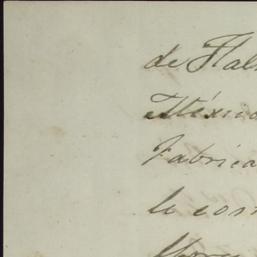 de Hal
México
Fabrica
le com